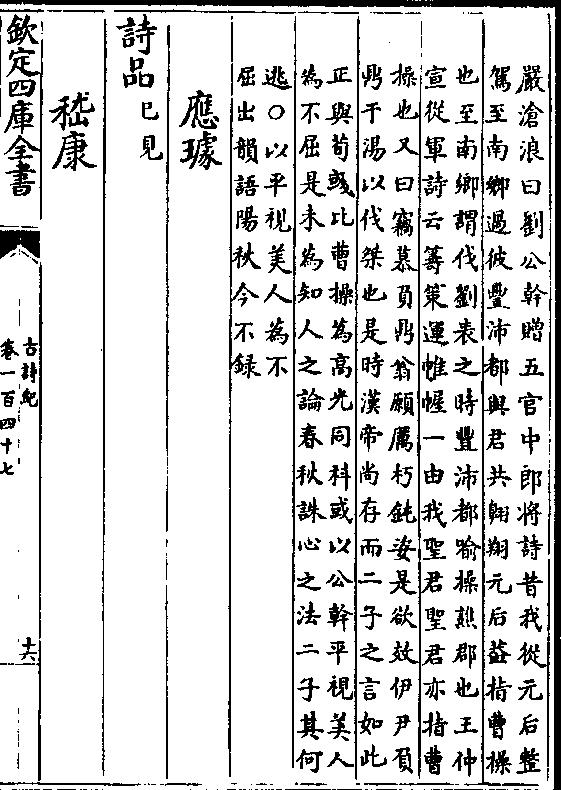 嚴滄浪曰劉公幹贈五官中郎將詩昔我從元后整
駕至南鄉過彼豐沛都與君共翱翔元后蓋指曹操
也至南鄉謂伐劉表之時豐沛都喻操譙郡也王仲
宣從軍詩云籌策運帷幄一由我聖君聖君亦指曹
操也又曰竊慕負鼎翁願厲朽鈍姿是欲效伊尹負
鼎干湯以伐桀也是時漢帝尚存而二子之言如此
正與荀彧比曹操為高光同科或以公幹平視美人
為不屈是未為知人之論春秋誅心之法二子其何
逃○以平視美人為不
屈出韻語陽秋今不錄
應璩
詩品已見
嵇康
欽定四庫全書
古詩紀
卷一百四十七
十六